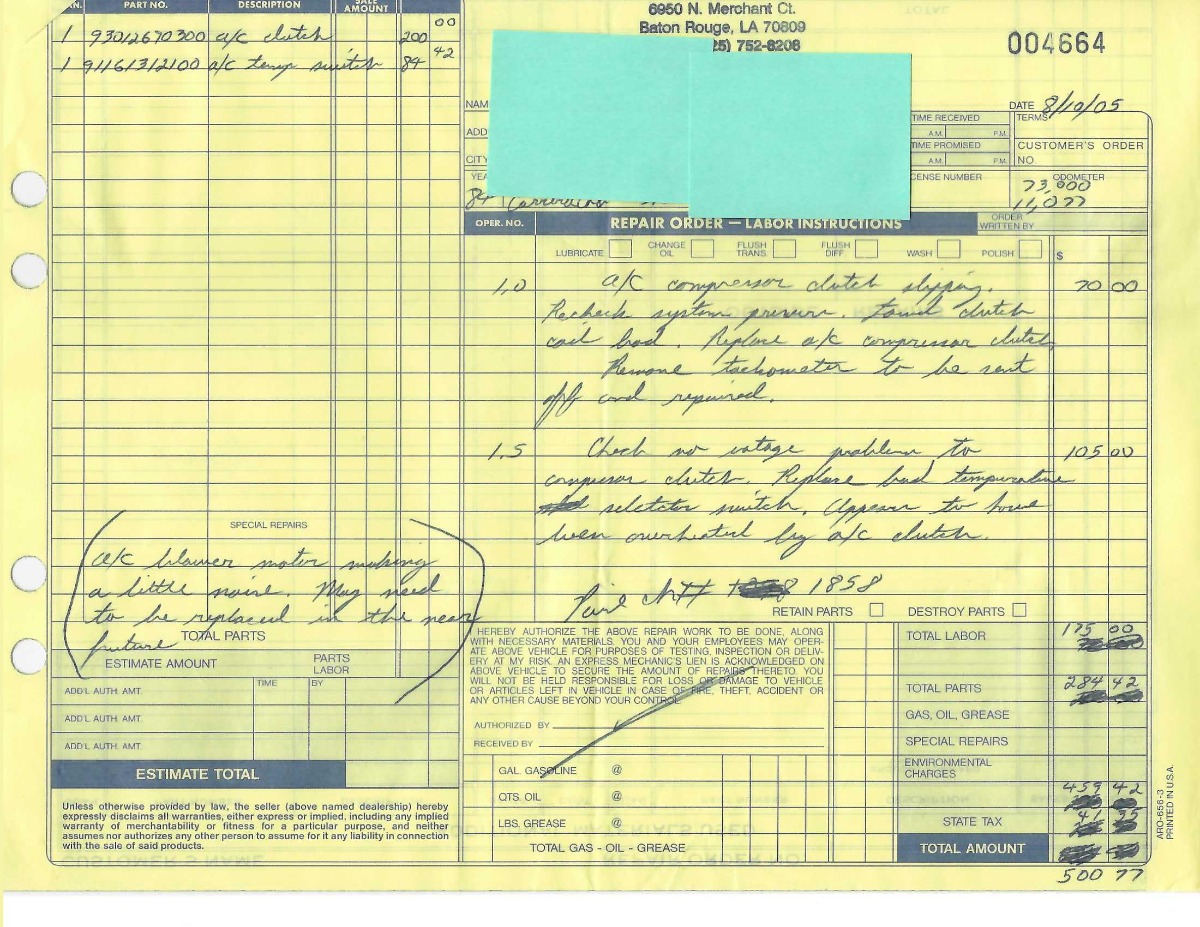 QN. PART NO. DESCRIPTION SALE AMOUNT
1 93012670300 a/c clutch 200 00
1 91161312100 a/c temp switch 84 42
6950 N. Merchant Ct.
Baton Rouge, LA 70809
25) 752-8208
004664
NAM
ADD
CITY
YEA
84 Carrera
DATE 8/10/05
TIME RECEIVED
A.M. P.M.
TERMS
TIME PROMISED
A.M. P.M.
CUSTOMER'S ORDER
NO.
CENSE NUMBER
ODOMETER
73,000
11,077
OPER. NO. REPAIR ORDER — LABOR INSTRUCTIONS
ORDER
WRITTEN BY
LUBRICATE CHANGE OIL FLUSH TRANS. FLUSH DIFF WASH POLISH $
1.0 a/c compressor clutch slipping. 70 00
Recheck system pressure. Found clutch
coil bad. Replace a/c compressor clutch
Remove tachometer to be sent
off and repaired.
1.5 Check no votage problem to 105 00
compressor clutch. Replace bad tempurature
selector switch. Appear to have
been overheated by a/c clutch.
1858
RETAIN PARTS DESTROY PARTS
SPECIAL REPAIRS
a/c blower motor making
a little noise. May need
to be replaced in the near
future
TOTAL PARTS
ESTIMATE AMOUNT PARTS
LABOR
ADD'L AUTH. AMT. TIME BY
ADD'L AUTH. AMT.
ADD'L AUTH. AMT.
ESTIMATE TOTAL
Unless otherwise provided by law, the seller (above named dealership) hereby
expressly disclaims all warranties, either express or implied, including any implied
warranty of merchantability or fitness for a particular purpose, and neither
assumes nor authorizes any other person to assume for it any liability in connection
with the sale of said products.
I HEREBY AUTHORIZE THE ABOVE REPAIR WORK TO BE DONE, ALONG
WITH NECESSARY MATERIALS. YOU AND YOUR EMPLOYEES MAY OPER-
ATE ABOVE VEHICLE FOR PURPOSES OF TESTING, INSPECTION OR DELIV-
ERY AT MY RISK. AN EXPRESS MECHANIC'S LIEN IS ACKNOWLEDGED ON
ABOVE VEHICLE TO SECURE THE AMOUNT OF REPAIRS THERETO. YOU
WILL NOT BE HELD RESPONSIBLE FOR LOSS OR DAMAGE TO VEHICLE
OR ARTICLES LEFT IN VEHICLE IN CASE OF FIRE, THEFT, ACCIDENT OR
ANY OTHER CAUSE BEYOND YOUR CONTROL.
AUTHORIZED BY
RECEIVED BY
GAL. GASOLINE @
QTS. OIL @
LBS. GREASE @
TOTAL GAS - OIL - GREASE
TOTAL LABOR 175 00
TOTAL PARTS 284 42
GAS, OIL, GREASE
SPECIAL REPAIRS
ENVIRONMENTAL
CHARGES
459 42
STATE TAX 41 35
TOTAL AMOUNT
500 77
ARO-656-3
PRINTED IN U.S.A.